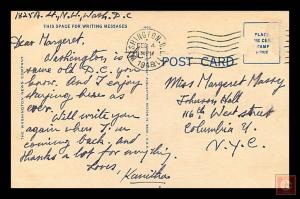 1825A. H, N.H, Wash. D.C
THIS SPACE FOR WRITING MESSAGES
Dear Margaret,
Washington is
same old D.C. you
know and I enjoy
staying here as
ever.
Will write you
again when I'm
coming back, and
thanks a lot for everything.
Love,
THE WASHINGTON NEWS COMPANY
WASHINGTON, D.C.
1948
POST CARD
PLACE
STAMP
HERE
Miss Margaret Massey
Johnson Hall
116th West street
Columbia U.
N.Y.C.